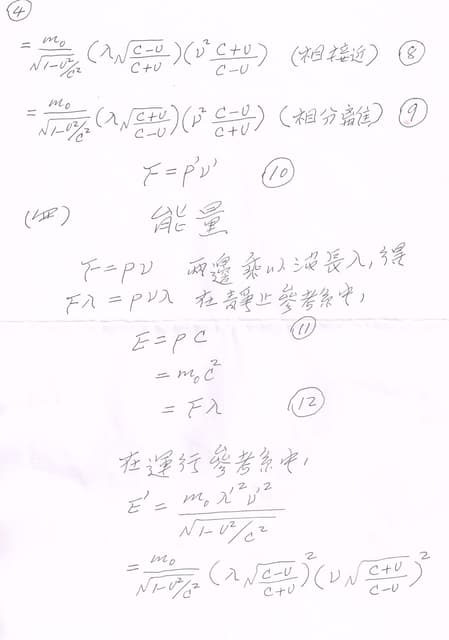 ④
= m₀/√(1-υ²/c²) (λ√((c-υ)/(c+υ)))(ν² (c+υ)/(c-υ)) (相接近) ⑧
= m₀/√(1-υ²/c²) (λ√((c+υ)/(c-υ)))(ν² (c-υ)/(c+υ)) (相分離) ⑨
F = P'ν' ⑩
(四) 能量
F = Pν 兩邊乘以波長λ, 得
Fλ = Pνλ 在靜止參考系中,
E = PC ⑪
= m₀c²
= Fλ ⑫
在運行參考系中,
E' = m₀λ'²ν'²/√(1-υ²/c²)
= m₀/√(1-υ²/c²) (λ√((c-υ)/(c+υ)))² (ν√((c+υ)/(c-υ)))²